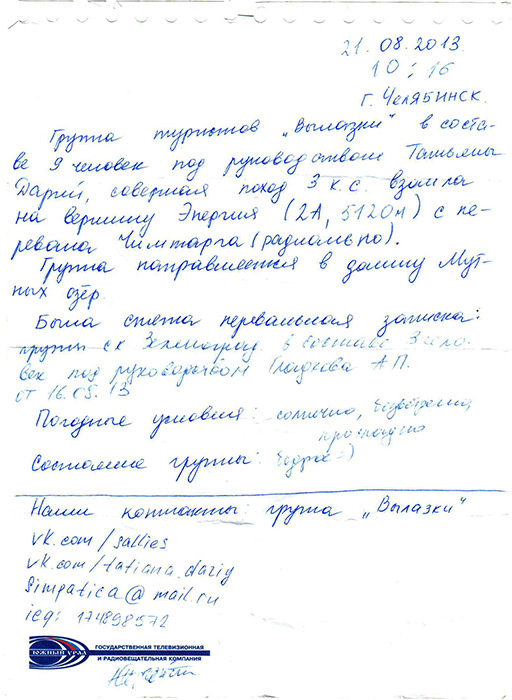 21.08.2013
10:16
г. Челябинск.
Группа туристов „Вылазки" в соста-
ве 9 человек под руководством Татьяны
Дарий, совершая поход 3 к.с. взошла
на вершину Энергия (2А, 5120м) с пе-
ревала Чимтарга (радиально).
Группа направляется в долину Мут-
ных озёр.
Была снята перевальная записка:
группы ск Зеленоград в составе 3 чело
век под руководством Гладкова А.П.
от 16.05.13
Погодные условия: солнечно, безветренно,
прохладно
Состояние группы: бодрое =)
Наши контакты: группа „Вылазки"
vk.com/sallies
vk.com/tatiana_dariy
Simpatica@mail.ru
icq: 174898572
ЮЖНЫЙ УРАЛ
ГОСУДАРСТВЕННАЯ ТЕЛЕВИЗИОННАЯ
И РАДИОВЕЩАТЕЛЬНАЯ КОМПАНИЯ